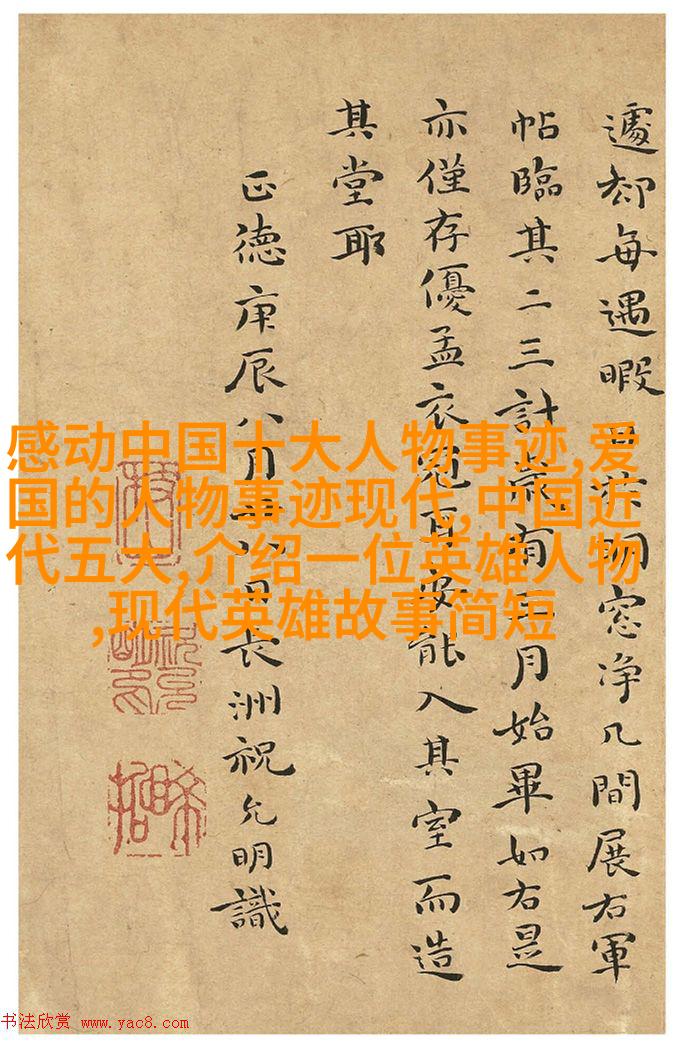 遽却每遇暇日於明窓净几間展右軍
帖臨其二三計歲月始畢如右是
亦僅存優孟衣冠耳安能入其室而造
其堂耶
正德庚辰八月日長洲祝允明識
感动中国十大人物事迹,爱
国的人物事迹现代,中国近
代五大,介绍一位英雄人物
,现代英雄故事简短
书法欣赏 www.yac8.com